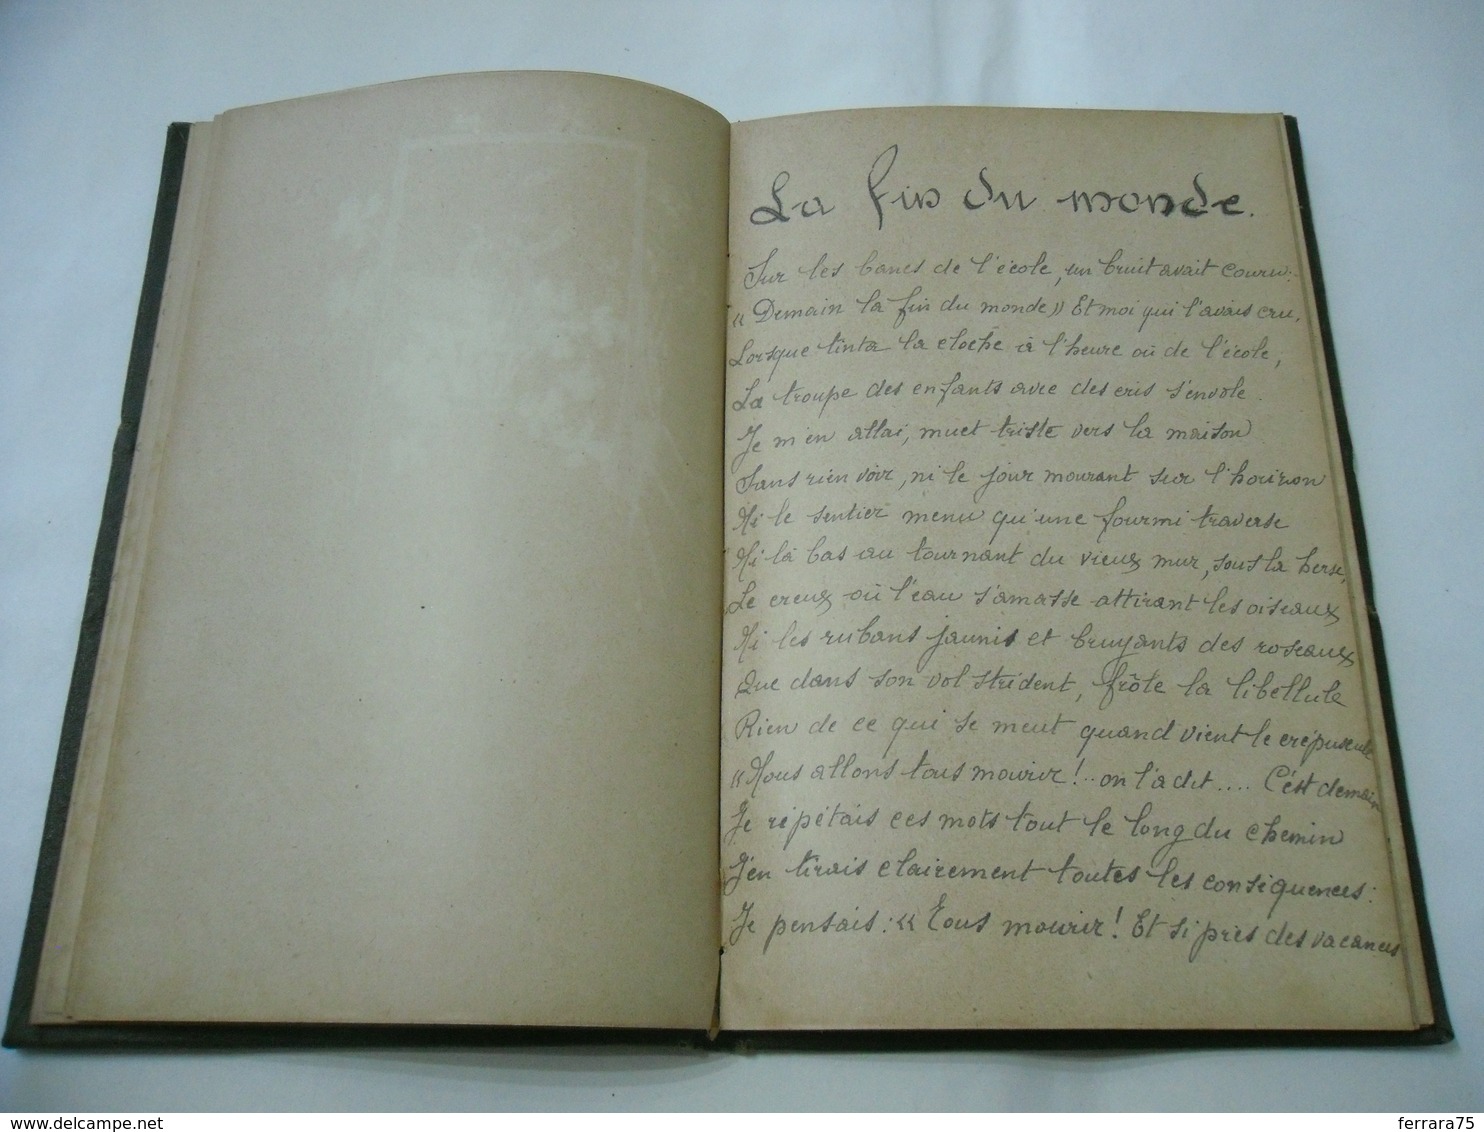 La fin du monde.
Sur les bancs de l'école, un bruit avait couru:
« Demain la fin du monde » Et moi qui l'avais cru,
Lorsque tinta la cloche à l'heure où de l'école,
La troupe des enfants avec des cris s'envole.
Je m'en allai, muet triste vers la maison
Sans rien voir, ni le jour mourant sur l'horizon
Ni le sentier menu qu'une fourmi traverse
Ni là bas au tournant du vieux mur, sous la herse,
Le creux où l'eau s'amasse attirant les oiseaux
Ni les rubans jaunis et bruyants des roseaux
Que dans son vol strident, frôle la libellule
Rien de ce qui se meut quand vient le crépuscule
« Nous allons tous mourir!.. on l'a dit.... C'est demain
Je répétais ces mots tout le long du chemin
J'en tirais clairement toutes les conséquences:
Je pensais: « Tous mourir! Et si près des vacances
ferrara75